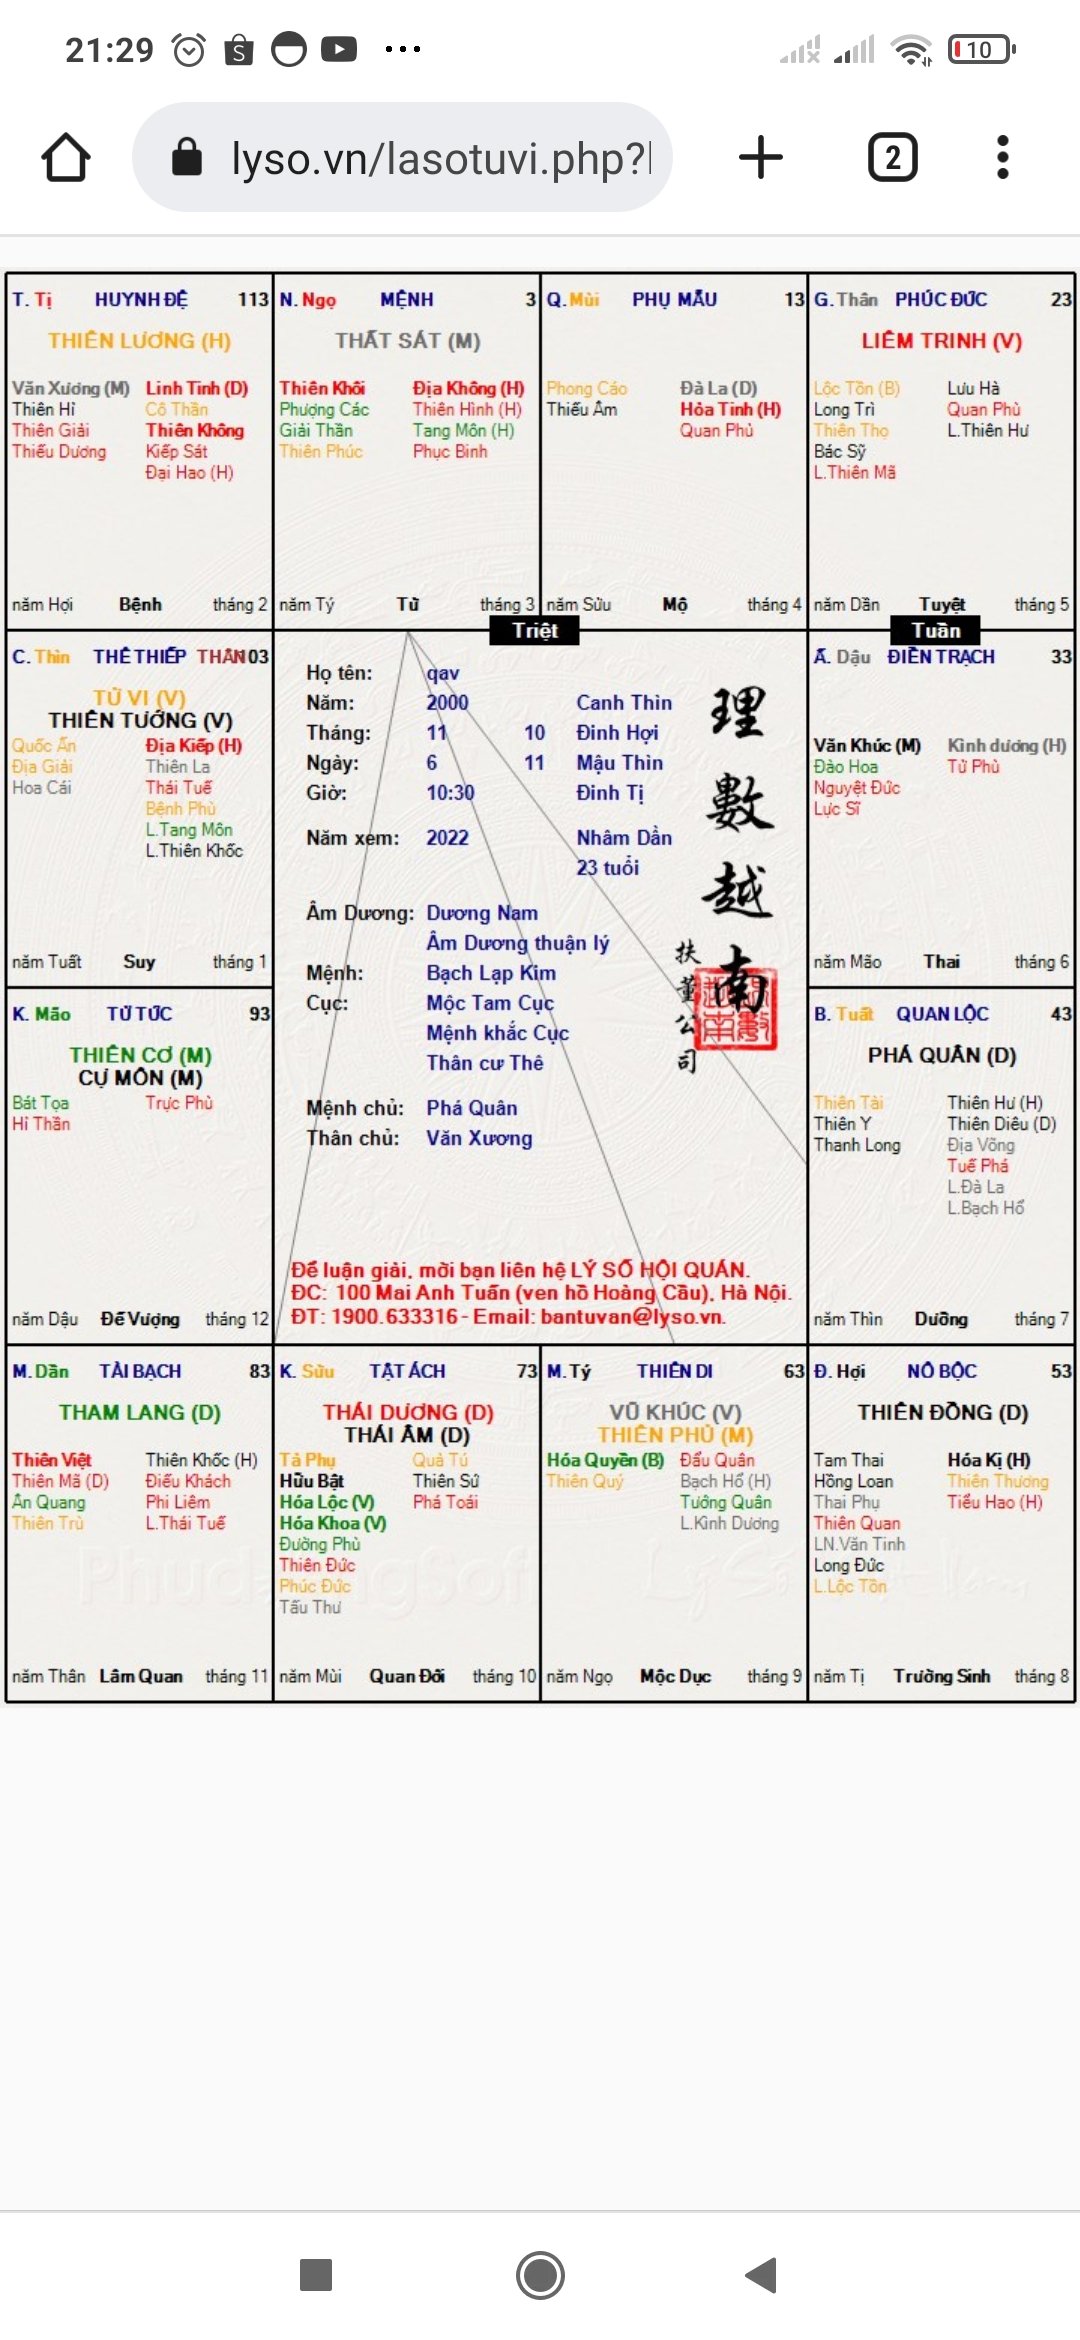 21:29
10
lyso.vn/lasotuvi.php?l
2
T. Tị HUYNH ĐỆ 113
THIÊN LƯƠNG (H)
Văn Xương (M) Linh Tinh (D)
Thiên Hỉ Cô Thần
Thiên Giải Thiên Không
Thiếu Dương Kiếp Sát
Đại Hao (H)
năm Hợi Bệnh tháng 2
N. Ngọ MỆNH 3
THẤT SÁT (M)
Thiên Khôi Địa Không (H)
Phượng Các Thiên Hình (H)
Giải Thần Tang Môn (H)
Thiên Phúc Phục Binh
năm Tý Tử tháng 3
Q. Mùi PHỤ MẪU 13
Phong Cáo Đà La (D)
Thiếu Âm Hỏa Tinh (H)
Quan Phủ
năm Sửu Mộ tháng 4
G. Thân PHÚC ĐỨC 23
LIÊM TRINH (V)
Lộc Tồn (B) Lưu Hà
Long Trì Quan Phù
Thiên Thọ L.Thiên Hư
Bác Sỹ
L.Thiên Mã
năm Dần Tuyệt tháng 5
Triệt
Tuần
C. Thìn THÊ THIẾP THÂN 103
TỬ VI (V)
THIÊN TƯỚNG (V)
Quốc Ấn Địa Kiếp (H)
Địa Giải Thiên La
Hoa Cái Thái Tuế
Bệnh Phù
L.Tang Môn
L.Thiên Khốc
năm Tuất Suy tháng 1
Họ tên: qav
Năm: 2000 Canh Thìn
Tháng: 11 10 Đinh Hợi
Ngày: 6 11 Mậu Thìn
Giờ: 10:30 Đinh Tị
Năm xem: 2022 Nhâm Dần
23 tuổi
Âm Dương: Dương Nam
Âm Dương thuận lý
Mệnh: Bạch Lạp Kim
Cục: Mộc Tam Cục
Mệnh khắc Cục
Thân cư Thê
Mệnh chủ: Phá Quân
Thân chủ: Văn Xương
理數越南
扶董公司
Để luận giải, mời bạn liên hệ LÝ SỐ HỘI QUÁN.
ĐC: 100 Mai Anh Tuấn (ven hồ Hoàng Cầu), Hà Nội.
ĐT: 1900.633316 - Email: bantuvan@lyso.vn.
Ấ. Dậu ĐIỀN TRẠCH 33
Văn Khúc (M) Kình dương (H)
Đào Hoa Tử Phù
Nguyệt Đức
Lực Sĩ
năm Mão Thai tháng 6
K. Mão TỬ TỨC 93
THIÊN CƠ (M)
CỰ MÔN (M)
Bát Tọa Trực Phù
Hỉ Thần
năm Dậu Đế Vượng tháng 12
B. Tuất QUAN LỘC 43
PHÁ QUÂN (D)
Thiên Tài Thiên Hư (H)
Thiên Y Thiên Diêu (D)
Thanh Long Địa Võng
Tuế Phá
L.Đà La
L.Bạch Hổ
năm Thìn Dưỡng tháng 7
M. Dần TÀI BẠCH 83
THAM LANG (D)
Thiên Việt Thiên Khốc (H)
Thiên Mã (D) Điếu Khách
Ân Quang Phi Liêm
Thiên Trù L.Thái Tuế
năm Thân Lâm Quan tháng 11
K. Sửu TẬT ÁCH 73
THÁI DƯƠNG (D)
THÁI ÂM (D)
Tả Phụ Quả Tú
Hữu Bật Thiên Sứ
Hóa Lộc (V) Phá Toái
Hóa Khoa (V)
Đường Phù
Thiên Đức
Phúc Đức
Tấu Thư
năm Mùi Quan Đới tháng 10
M. Tý THIÊN DI 63
VŨ KHÚC (V)
THIÊN PHỦ (M)
Hóa Quyền (B) Đẩu Quân
Thiên Quý Bạch Hổ (H)
Tướng Quân
L.Kình Dương
năm Ngọ Mộc Dục tháng 9
Đ. Hợi NÔ BỘC 53
THIÊN ĐỒNG (D)
Tam Thai Hóa Kị (H)
Hồng Loan Thiên Thương
Thai Phụ Tiểu Hao (H)
Thiên Quan
LN.Văn Tinh
Long Đức
L.Lộc Tồn
năm Tị Trường Sinh tháng 8